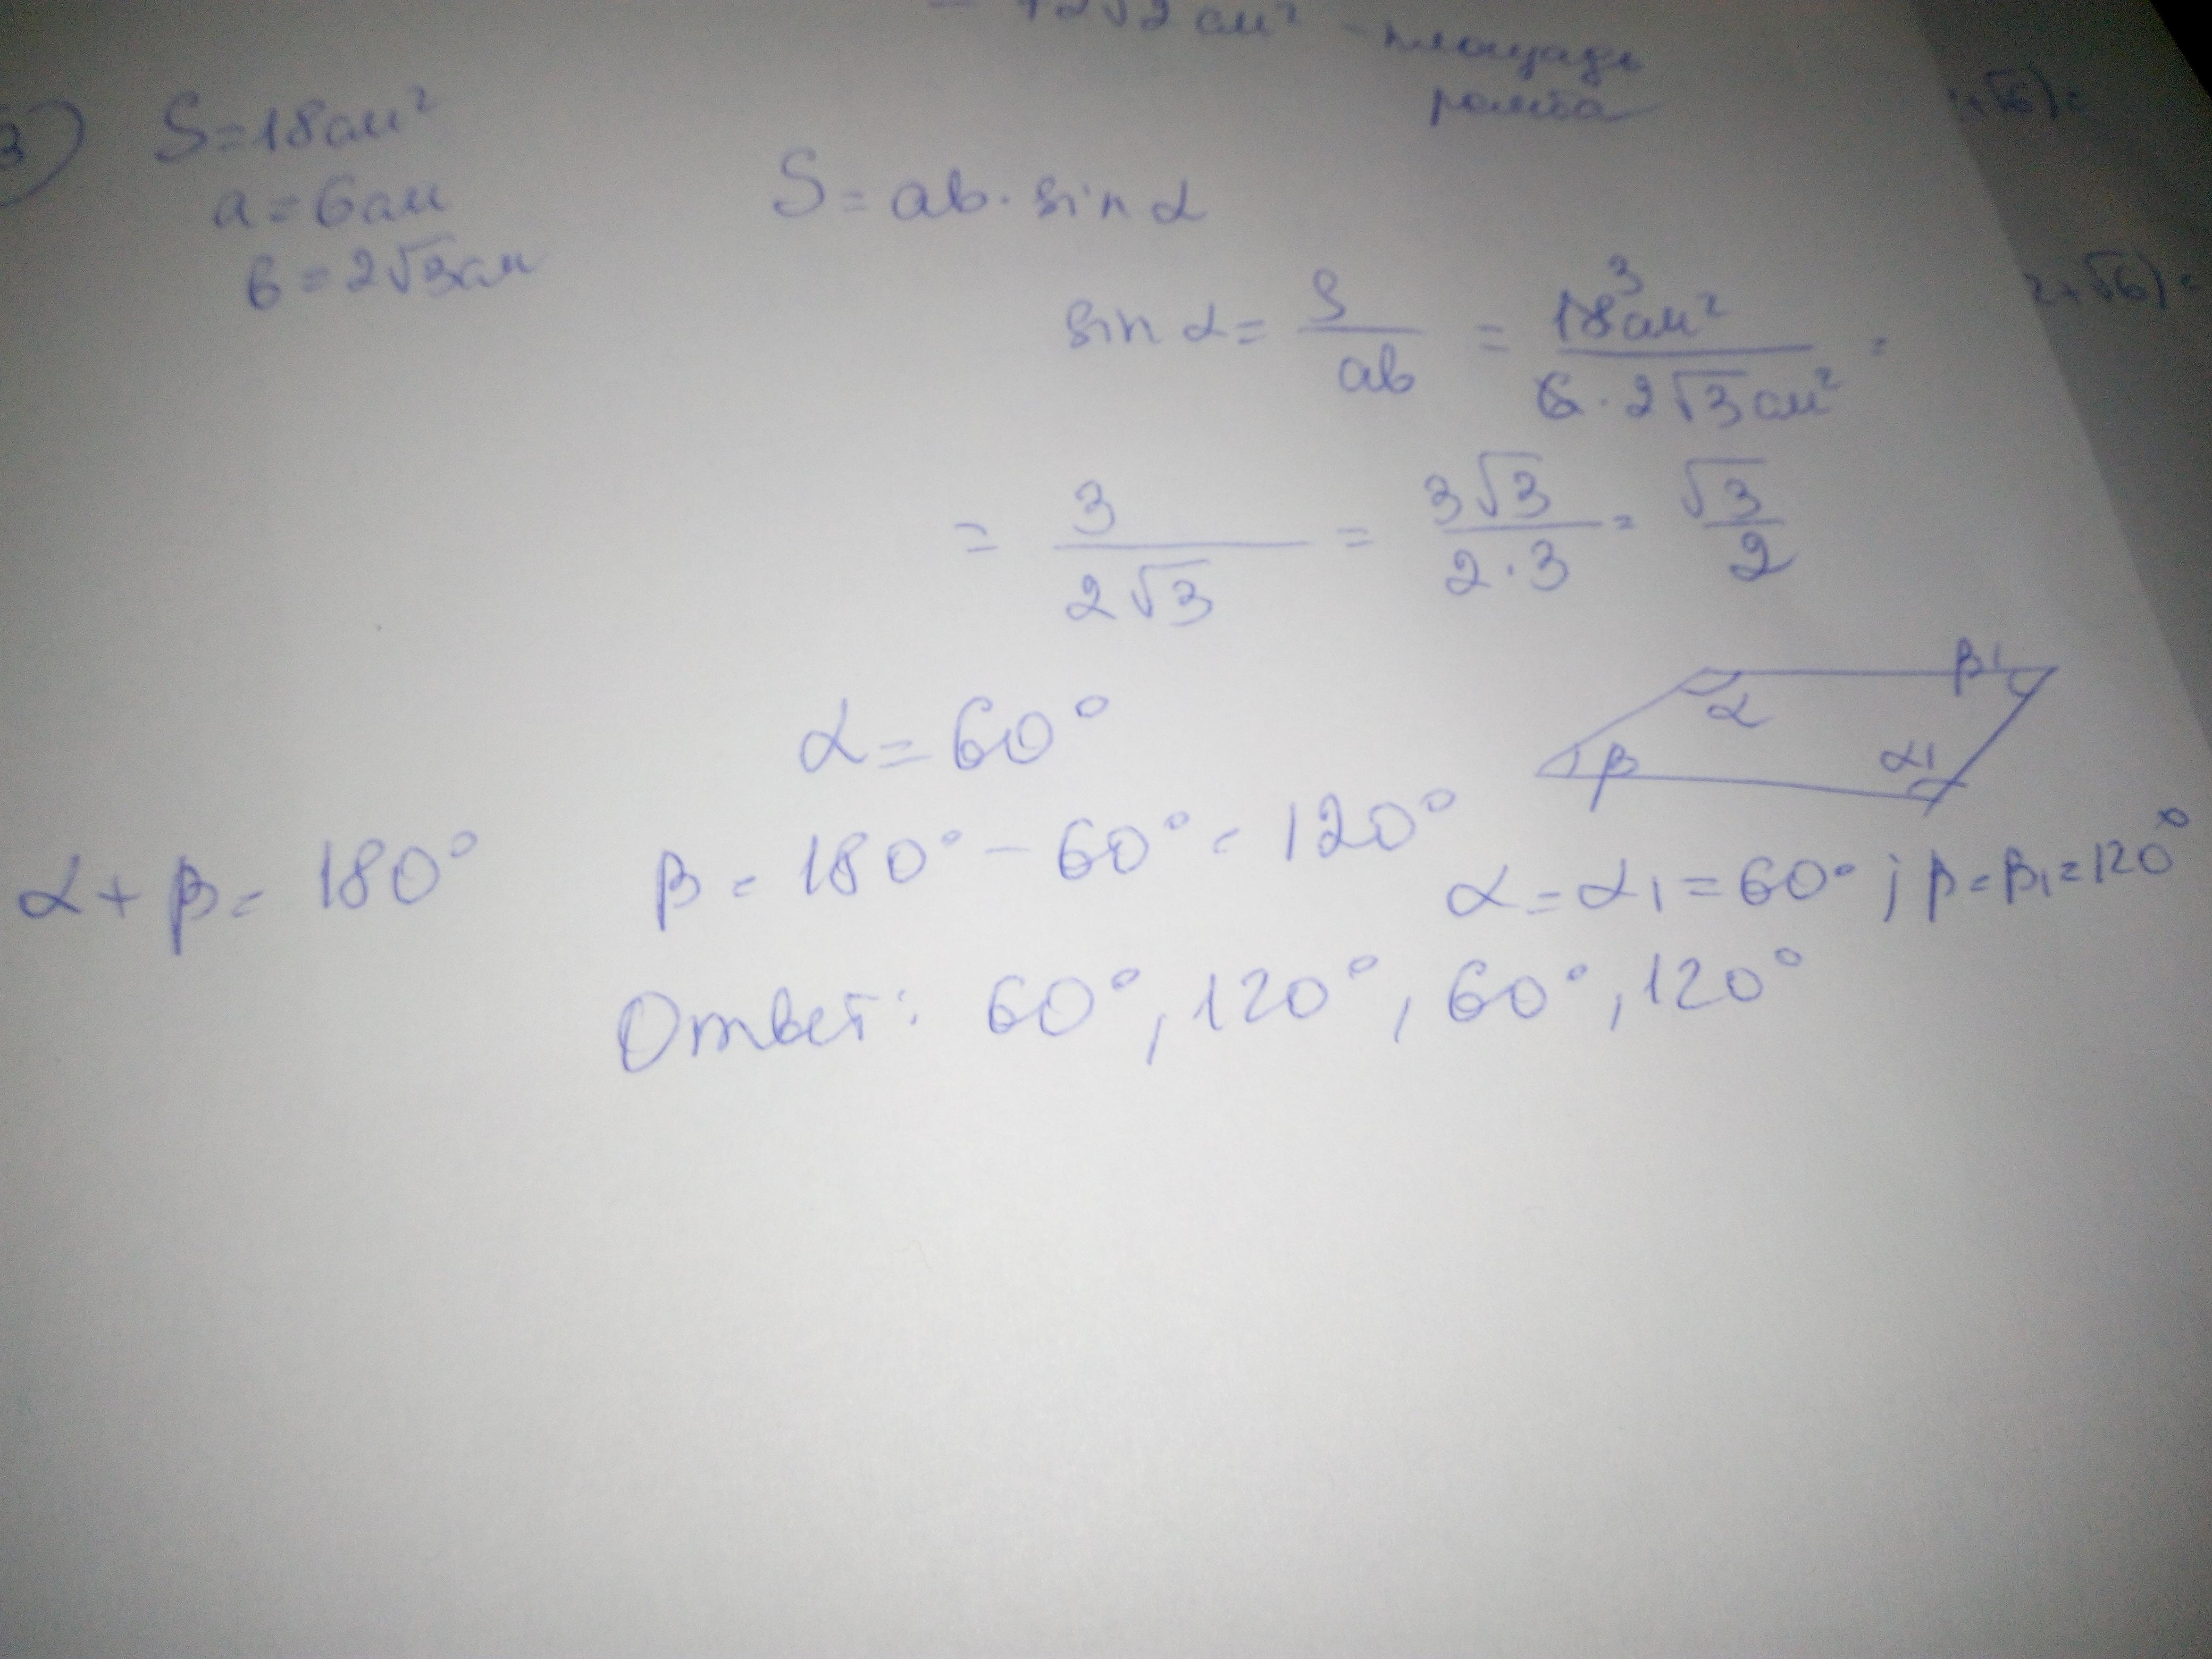 √2 см² - площадь
ромба
3) S = 18 см²
a = 6 см
в = 2√3 см
S = ab · sin α
sin α = S/ab = 18³ см² / 6 · 2√3 см² =
= 3/2√3 = 3√3/2·3 = √3/2
α = 60°
α β1
β α1
α + β = 180°
β = 180° - 60° = 120°
α = α1 = 60° ; β = β1 = 120°
Ответ: 60°, 120°, 60°, 120°
+√6) =
2+√6) =